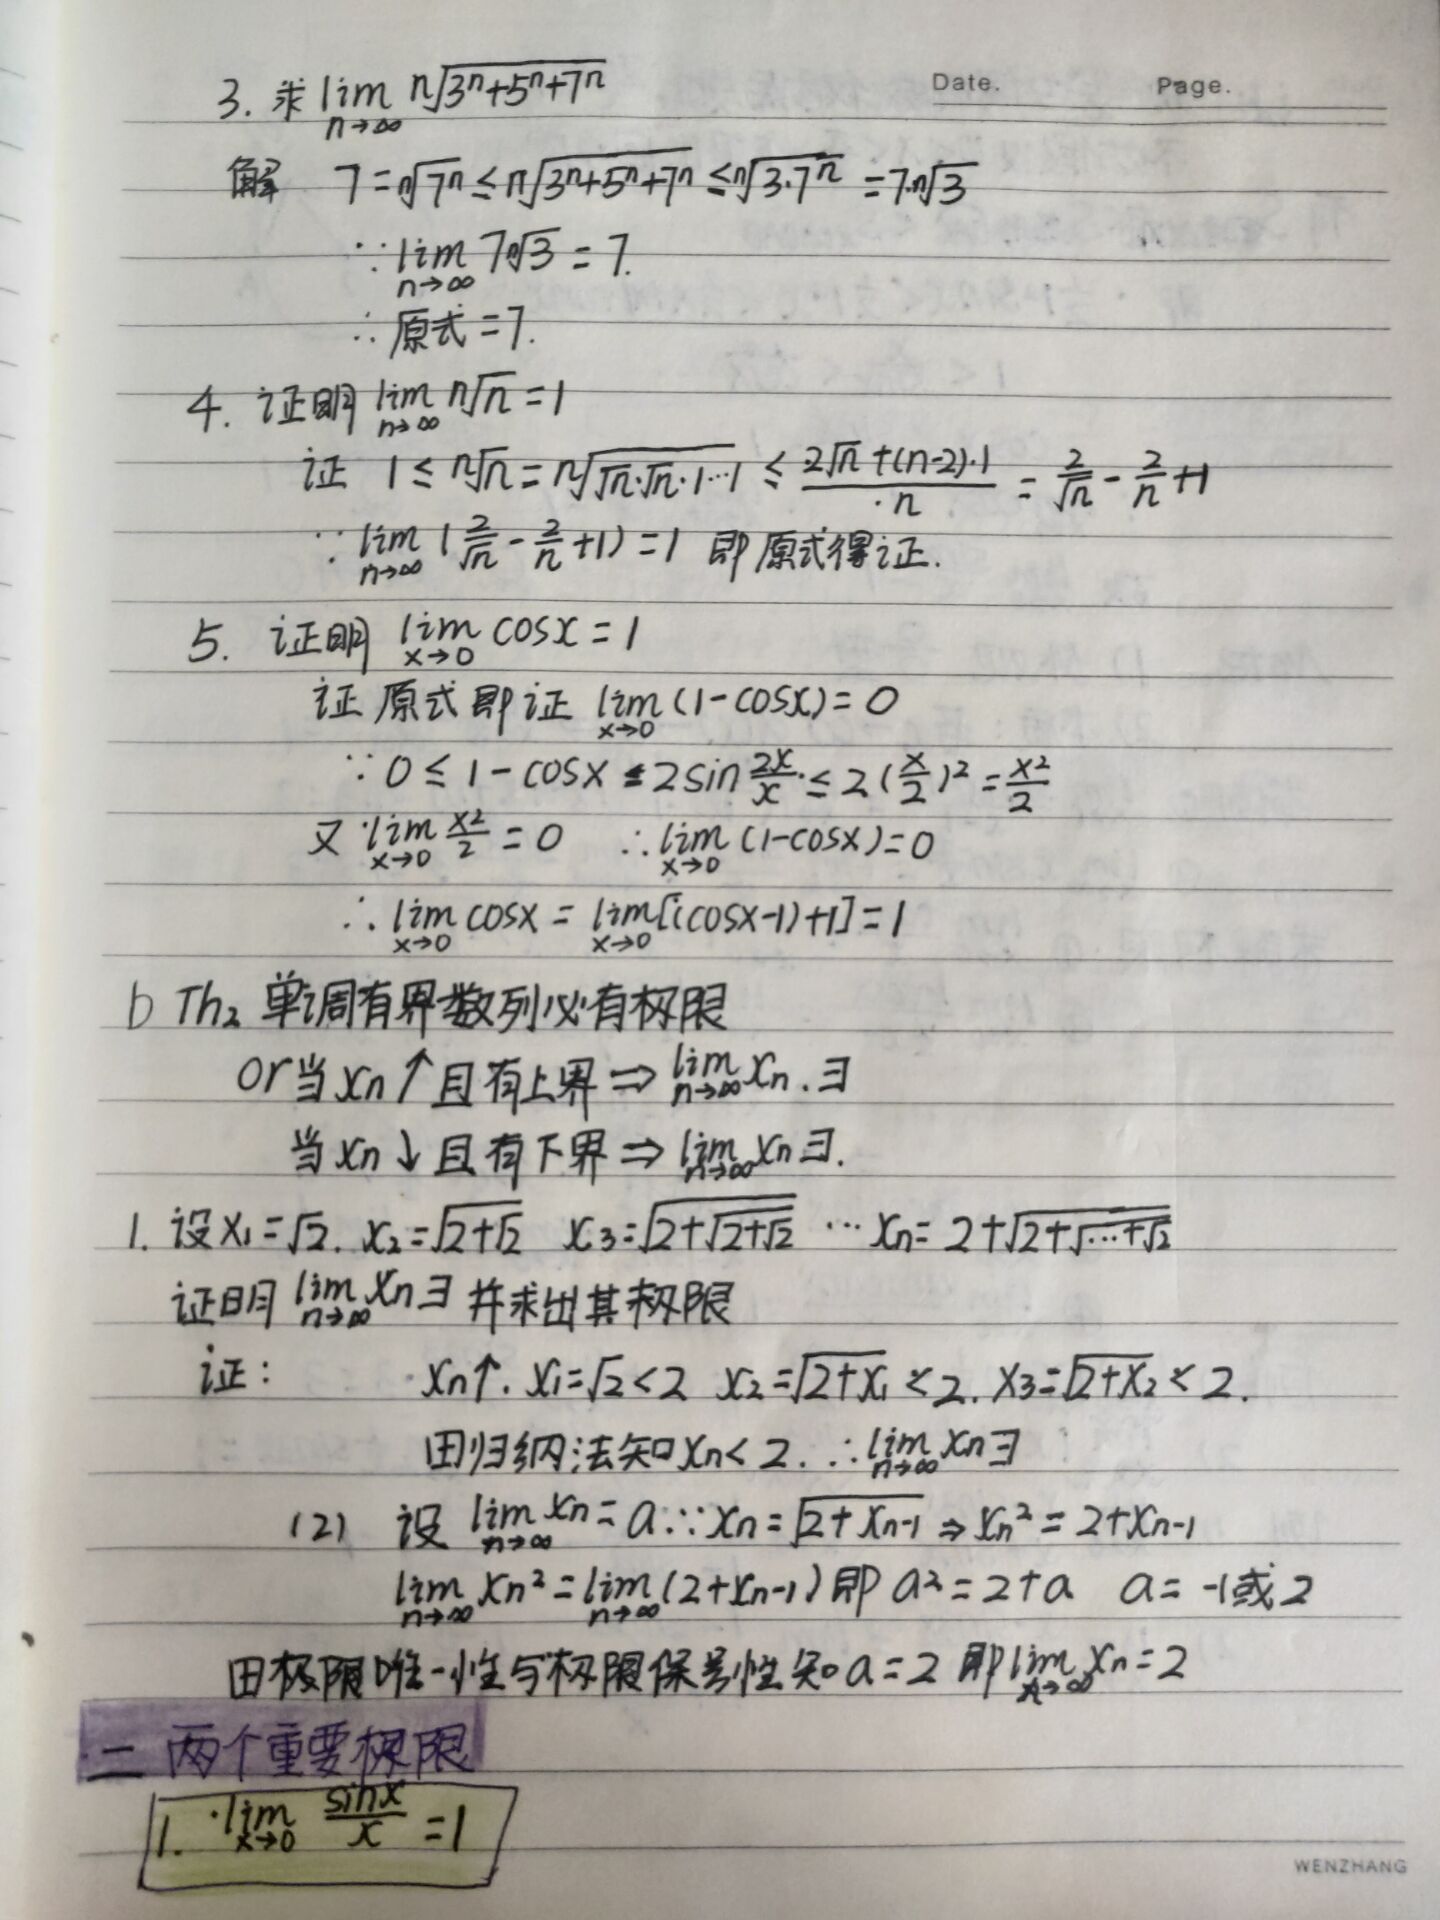 Date. Page.
3. 求 lim n→∞ ⁿ√(3ⁿ+5ⁿ+7ⁿ)
解 7=ⁿ√7ⁿ≤ⁿ√(3ⁿ+5ⁿ+7ⁿ)≤ⁿ√(3·7ⁿ)=7·ⁿ√3
∵ lim n→∞ 7ⁿ√3=7.
∴原式=7.
4. 证明 lim n→∞ ⁿ√n=1
证 1≤ⁿ√n=ⁿ√(√n·√n·1…1)≤(2√n+(n-2)·1)/n=2/√n-2/n+1
∵ lim n→∞ (2/√n-2/n+1)=1 即原式得证.
5. 证明 lim x→0 cosx=1
证 原式即证 lim x→0 (1-cosx)=0
∵ 0≤1-cosx≤2sin 2x/x≤2(x/2)²=x²/2
又 lim x→0 x²/2=0 ∴ lim x→0 (1-cosx)=0
∴ lim x→0 cosx=lim x→0 [(cosx-1)+1]=1
b Th₂ 单调有界数列必有极限
or当xn↑且有上界⇒lim n→∞ xn.∃
当xn↓且有下界⇒lim n→∞ xn∃.
1. 设x₁=√2. x₂=√(2+√2) x₃=√(2+√(2+√2)) …xn=2+√(2+√(…+√2))
证明 lim n→∞ xn∃ 并求出其极限
证: xn↑. x₁=√2<2 x₂=√(2+x₁)<2. x₃=√(2+x₂)<2.
由归纳法知xn<2.∴lim n→∞ xn∃
(2) 设 lim n→∞ xn=a∵xn=√(2+xn-1)⇒xn²=2+xn-1
lim n→∞ xn²=lim n→∞ (2+xn-1)即 a²=2+a a=-1或2
由极限唯一性与极限保号性知a=2 即lim n→∞ xn=2
二 两个重要极限
1. lim x→0 sinx/x=1
WENZHANG